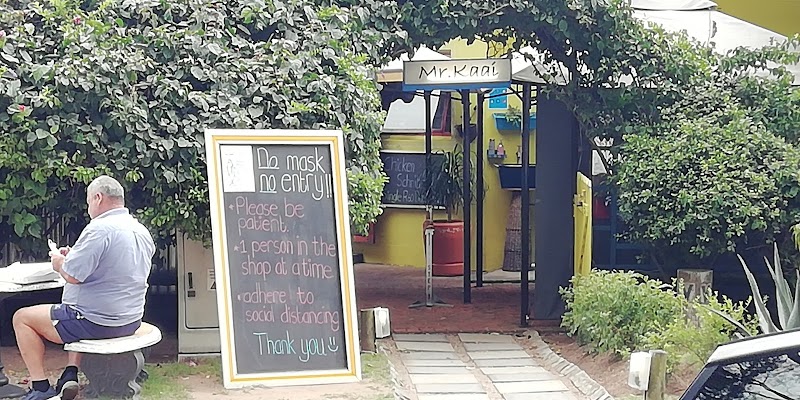 Mr.Kaai
No mask
no entry!!
*Please be
patient.
*1 person in the
shop at a time
*adhere to
social distancing
Thank you
Chicken
Schnit